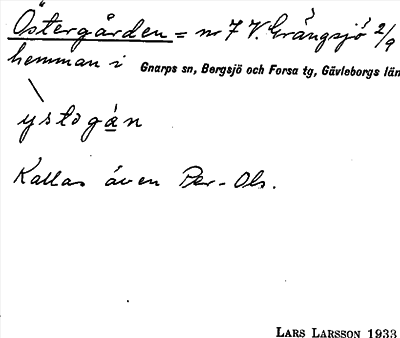 Östergården = nr 7 V. Grängsjö 2/9
hemman i Gnarps sn, Bergsjö och Forsa tg, Gävleborgs län
ystogán
Kallas även Per-Ols.
LARS LARSSON 1933